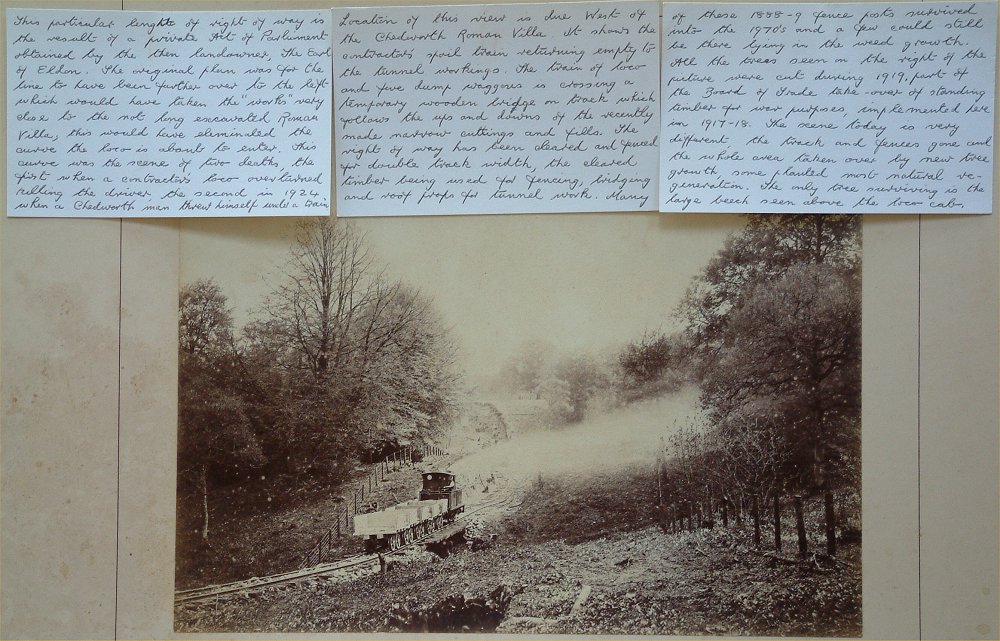 This particular lenght of right of way is
the result of a private Act of Parliament
obtained by the then landowner, the Earl
of Eldon. The original plan was for the
line to have been further over to the left
which would have taken the "works" very
close to the not long excavated Roman
Villa, this would have eleminated the
curve the loco is about to enter. This
curve was the scene of two deaths, the
first when a contractors loco overturned
killing the driver, the second in 1924
when a Chedworth man threw himself under a train
Location of this view is due West of
the Chedworth Roman Villa. It shows the
contractors spoil train returning empty to
the tunnel workings. The train of loco
and five dump waggons is crossing a
temporary wooden bridge on track which
follows the ups and downs of the recently
made narrow cuttings and fills. The
right of way has been cleared and fenced
for double track width, the cleared
timber being used for fencing, bridging
and roof props for tunnel work. Many
of these 1888-9 fence posts survived
into the 1970's and a few could still
be there lying in the weed growth.
All the trees seen on the right of the
picture were cut during 1919, part of
the Board of Trade take-over of standing
timber for war purposes, implemented here
in 1917-18. The scene today is very
different, the track and fences gone and
the whole area taken over by new tree
growth, some planted most natural re-
generation. The only tree surviving is the
large beech seen above the loco cab.